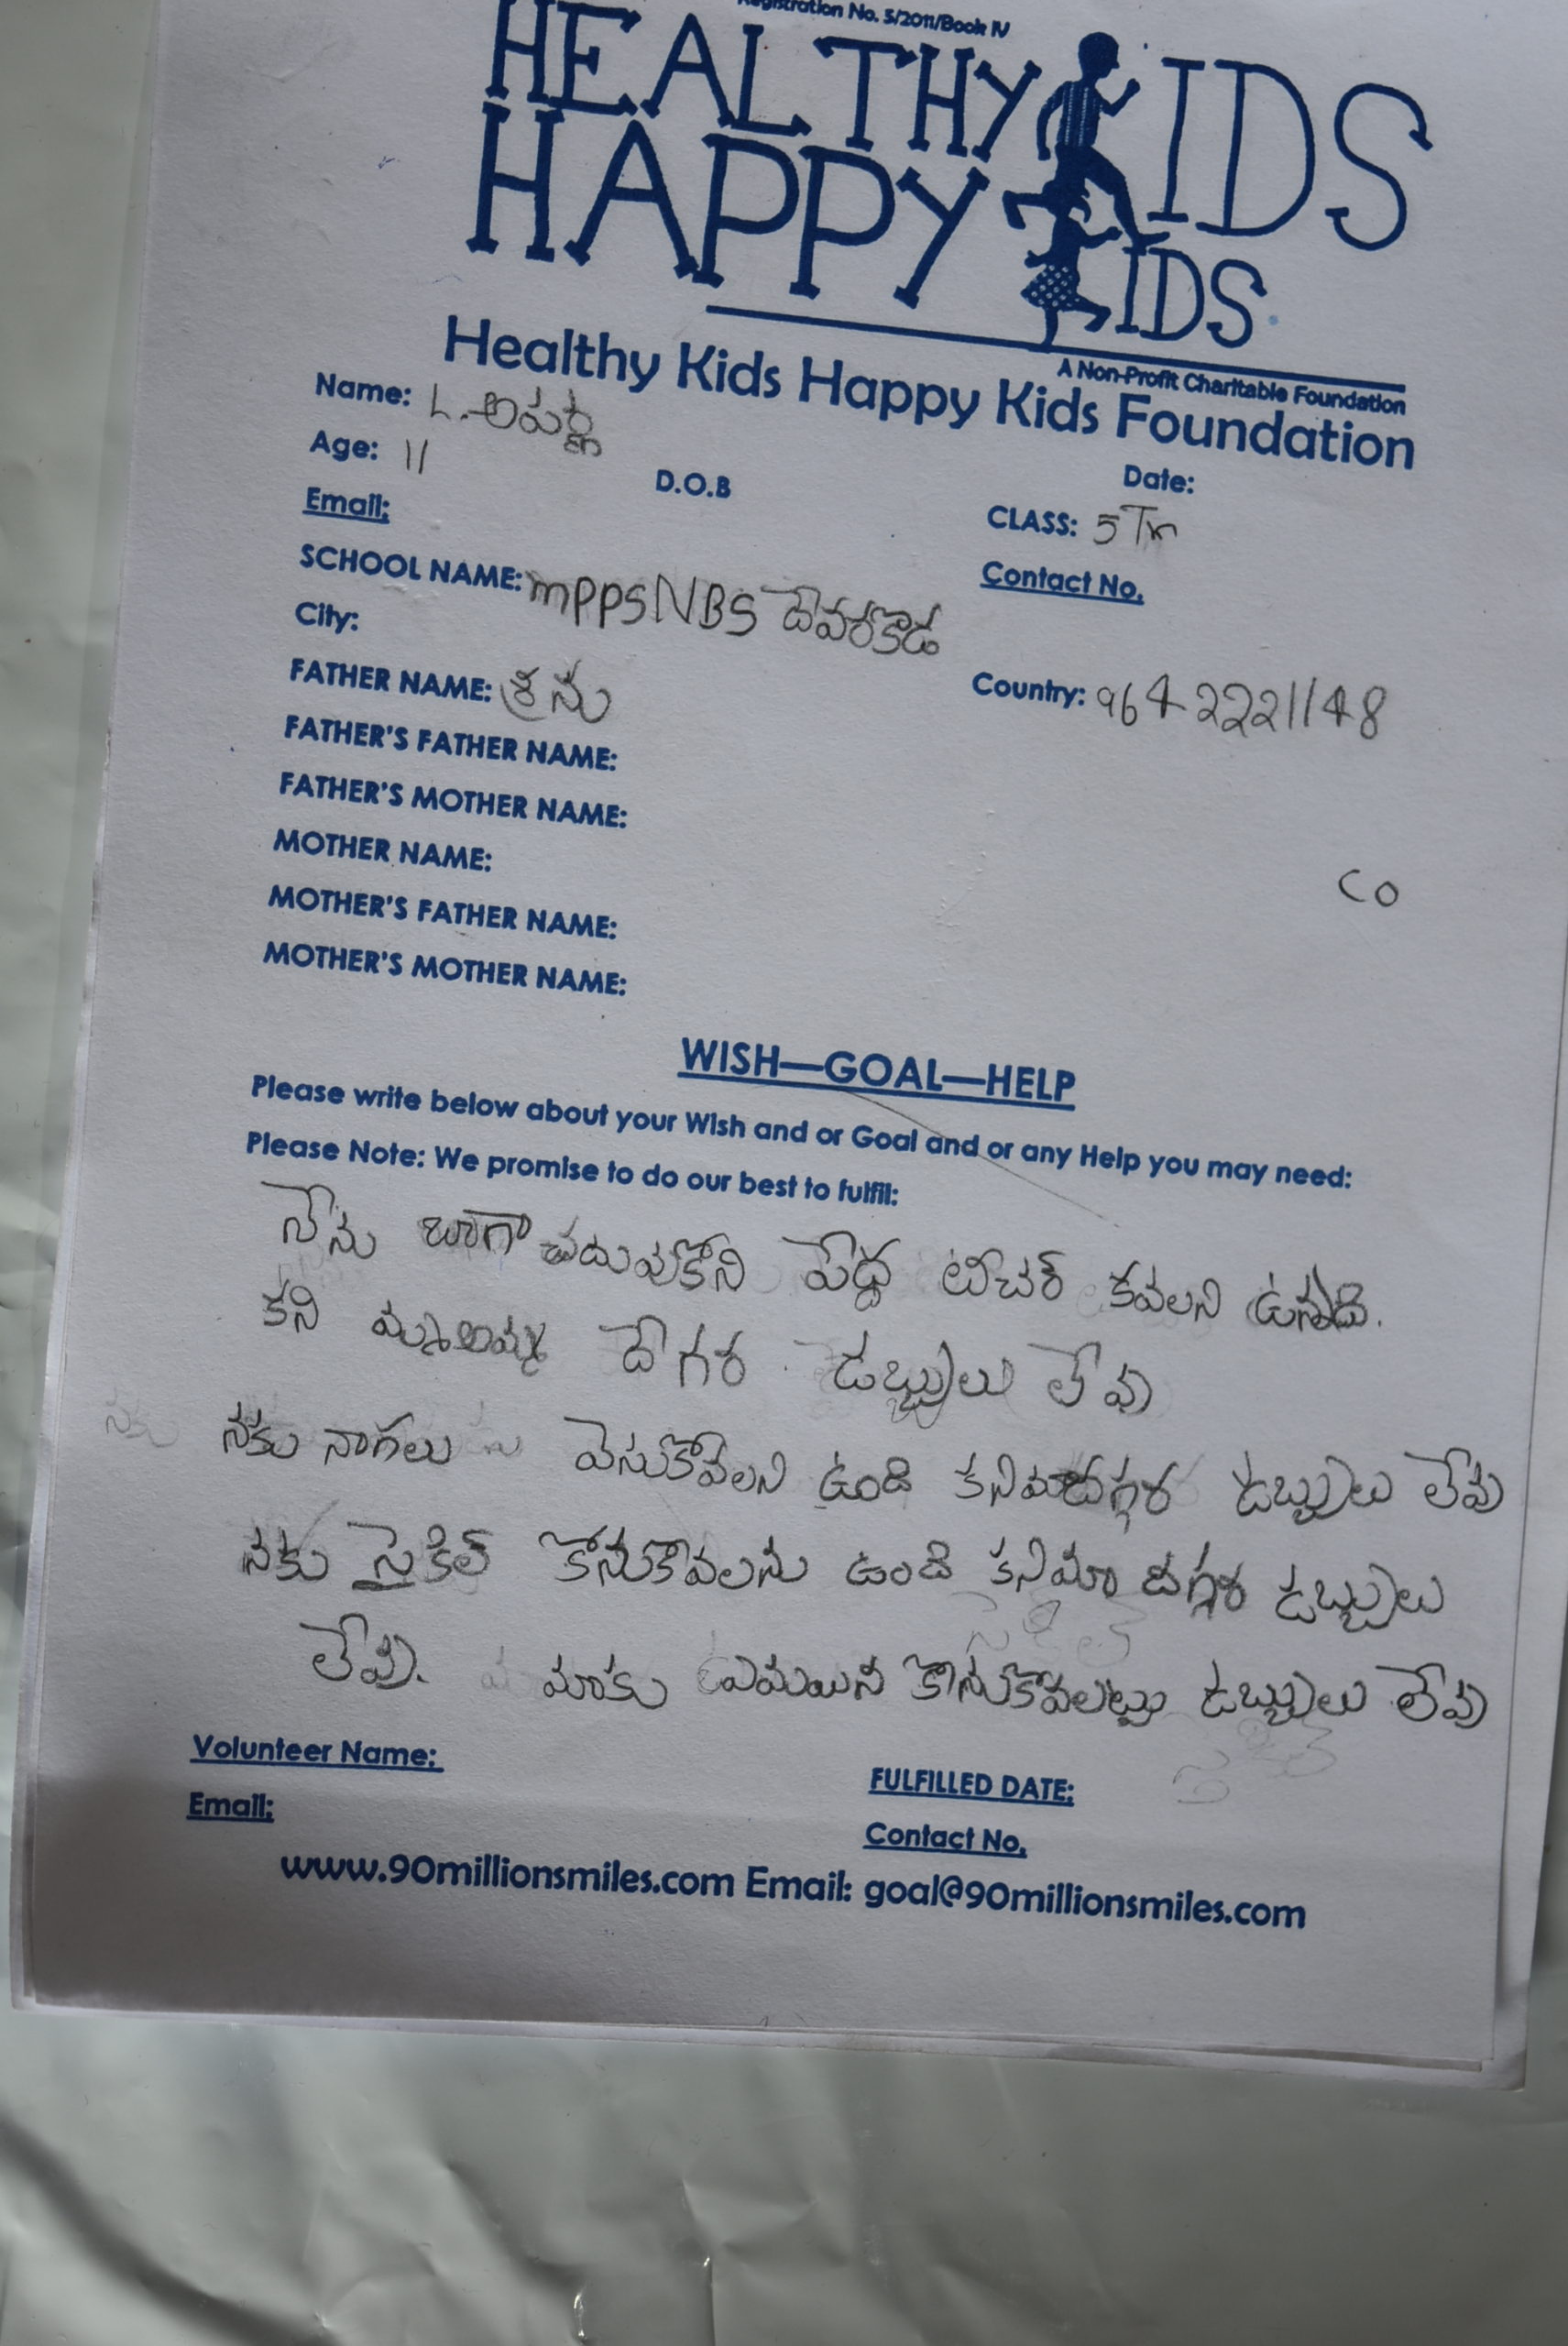 Registration No. 5/2011/Book IV
HEALTHY KIDS
HAPPY KIDS
A Non-Profit Charitable Foundation
Healthy Kids Happy Kids Foundation
Name: L. అపర్ణ
Date:
Age: 11
D.O.B
CLASS: 5Th
Email:
Contact No.
SCHOOL NAME: mPPSNBS దేవరకొడ
City:
Country: 9642221148
FATHER NAME: శ్రీను
FATHER'S FATHER NAME:
FATHER'S MOTHER NAME:
MOTHER NAME:
CO
MOTHER'S FATHER NAME:
MOTHER'S MOTHER NAME:
WISH—GOAL—HELP
Please write below about your Wish and or Goal and or any Help you may need:
Please Note: We promise to do our best to fulfil:
నేను బాగా చదువుకోని పేద్ద టీచర్ కవలని ఉన్నది.
కని దేగర డబ్బులు లేవు
నకు నాగలు వెసుకోవేలని ఉంది కనిమాదగ్గర డబ్బులు లేవు
నకు సైకిల్ కోనుకొవలను ఉంది కనిమా దగ్గర డబ్బులు
లేవు. మాకు కొనుకొవలట్టు డబ్బులు లేవు
Volunteer Name:
FULFILLED DATE:
Email:
Contact No.
www.90millionsmiles.com Email: goal@90millionsmiles.com